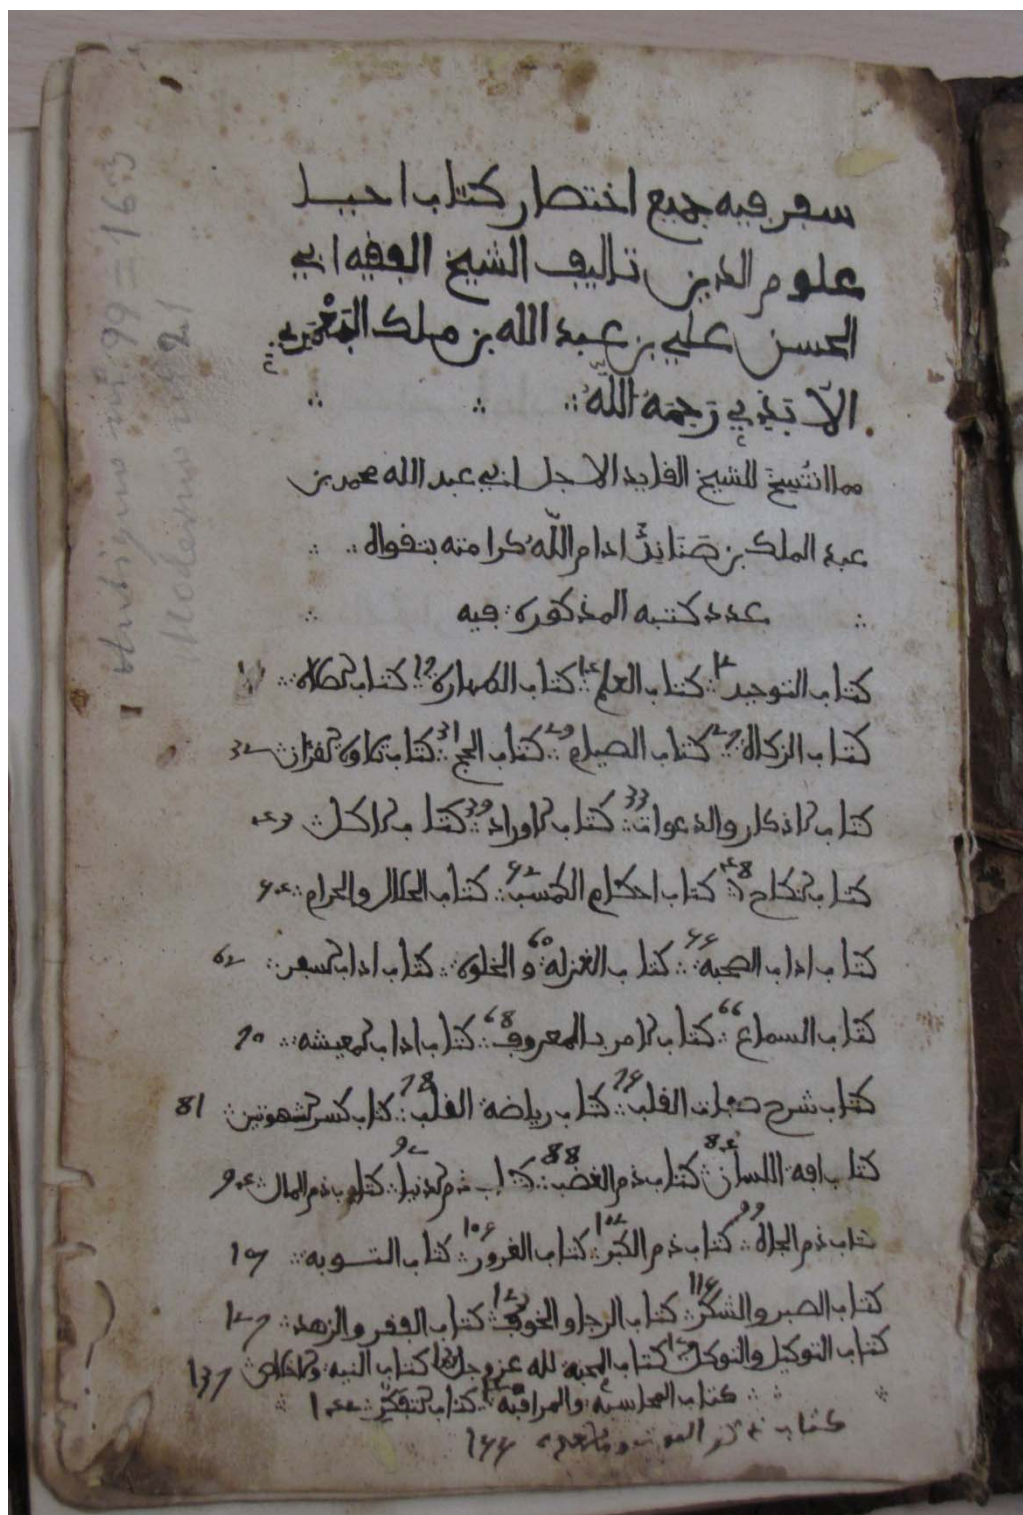 سفر فيه جميع اختصار كتاب احيا
علوم الدين تاليف الشيخ الفقيه ابي
الحسن علي بن عبد الله بن ملك
رحمه الله
مما انتسخ للشيخ القايد الاجل ابي عبد الله محمد بن
عبد الملك بن ادام الله كرامته بتقواه
عدد كتبه المذكورة فيه
كتاب التوحيد كتاب العلم كتاب الطهارة كتاب الصلاة
كتاب الزكاة كتاب الصيام كتاب الحج 31 كتاب تلاوة القرءان
كتاب الاذكار والدعوات 33 كتاب الاوراد 39 كتاب الاكل
كتاب النكاح كتاب احكام المكسب كتاب الحلال والحرام
كتاب اداب الصحبة كتاب العزلة والخلوة كتاب اداب السفر
كتاب السماع 66 كتاب الامر بالمعروف 68 كتاب اداب المعيشه
كتاب شرح صفات القلب كتاب رياضة القلب 78 كتاب كسر الشهوتين 81
كتاب افة اللسان كتاب ذم الغضب 88 كتاب ذم الدنيا كتاب ذم المال
كتاب ذم الجاه 99 كتاب ذم الكبر كتاب الغرور كتاب التوبه
كتاب الصبر والشكر كتاب الرجا والخوف كتاب الفقر والزهد
كتاب التوكل كتاب المحبة لله عز وجل كتاب النية والاخلاص 137
كتاب المحاسبة والمراقبة كتاب التفكر
كتاب ذكر الموت وما بعده
Antiguo nº 99 = 163
Moderno nº